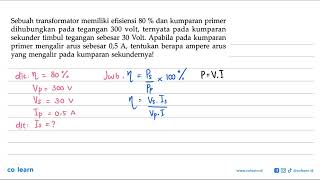 Sebuah transformator memiliki efisiensi 80 % dan kumparan primer
dihubungkan pada tegangan 300 volt, ternyata pada kumparan
sekunder timbul tegangan sebesar 30 Volt. Apabila pada kumparan
primer mengalir arus sebesar 0,5 A, tentukan berapa ampere arus
yang mengalir pada kumparan sekundernya!
dit: η = 80%
Vp = 300 V
Vs = 30 V
Ip = 0.5 A
dit: Is = ?
Jwb: η = Ps/Pp × 100%
η = Vs. Is/Vp. I
P = V. I
co learn
www.colearn.id
@colearn.id